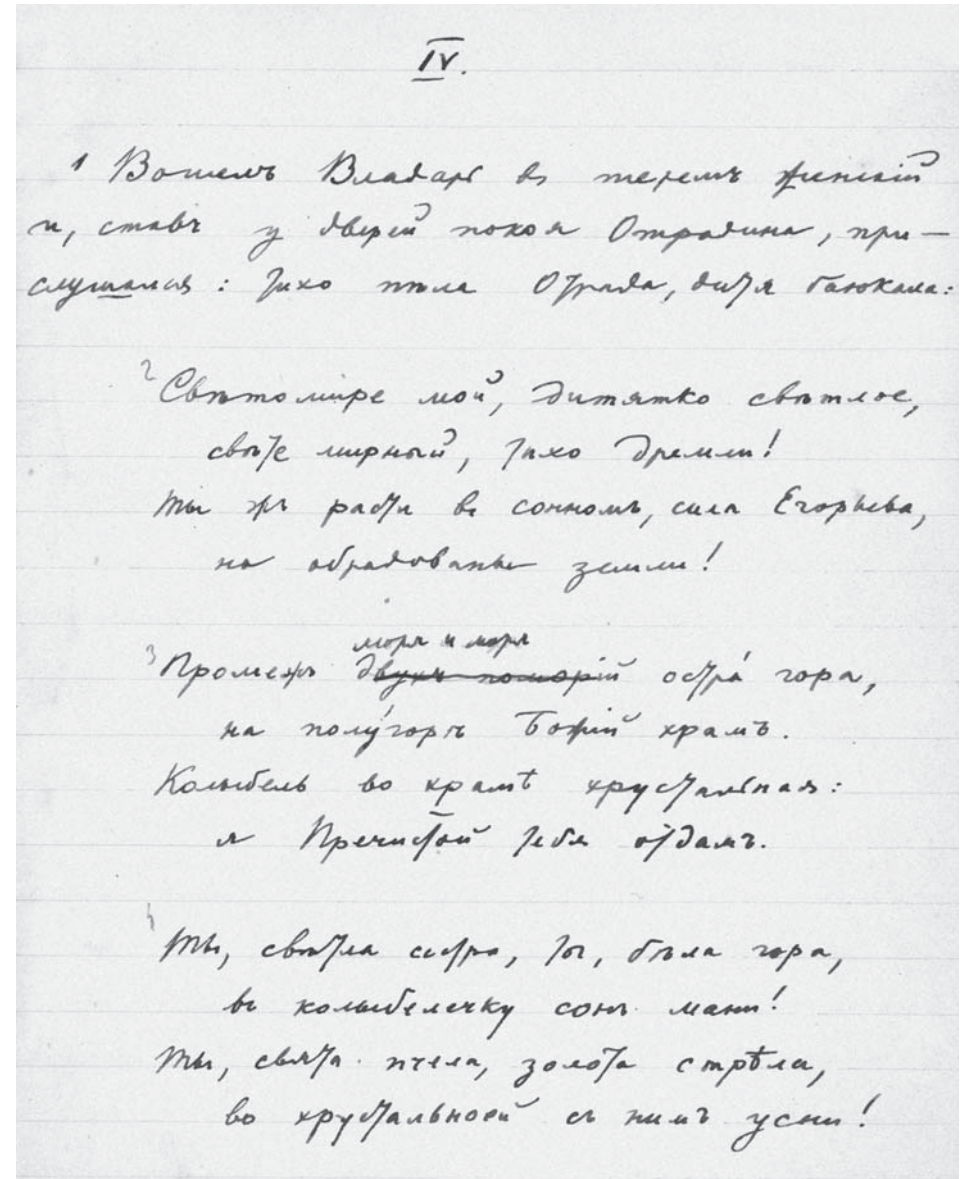 IV.
1 Вошелъ Владарь въ теремъ женскій
и, ставъ у дверей покоя Отрадина, при-
слушался: тихо пѣла Отрада, дитя баюкала:
2 Свѣтомире мой, дитятко свѣтлое,
свѣте мирный, тихо дремли!
Ты жъ расти въ сонномъ, сила Егорьева,
на обрадованье земли!
3 Промежъ двухъ поморій моря и моря остра́ гора,
на полу́горѣ Божій храмъ.
Колыбель во храмѣ хрустальная:
я Пречистой тебя отдамъ.
4 Ты, свѣтла сестра, ты, бѣла гора,
въ колыбелечку сонъ мани!
Ты, свята пчела, золота стрѣла,
во хрустальной съ нимъ усни!